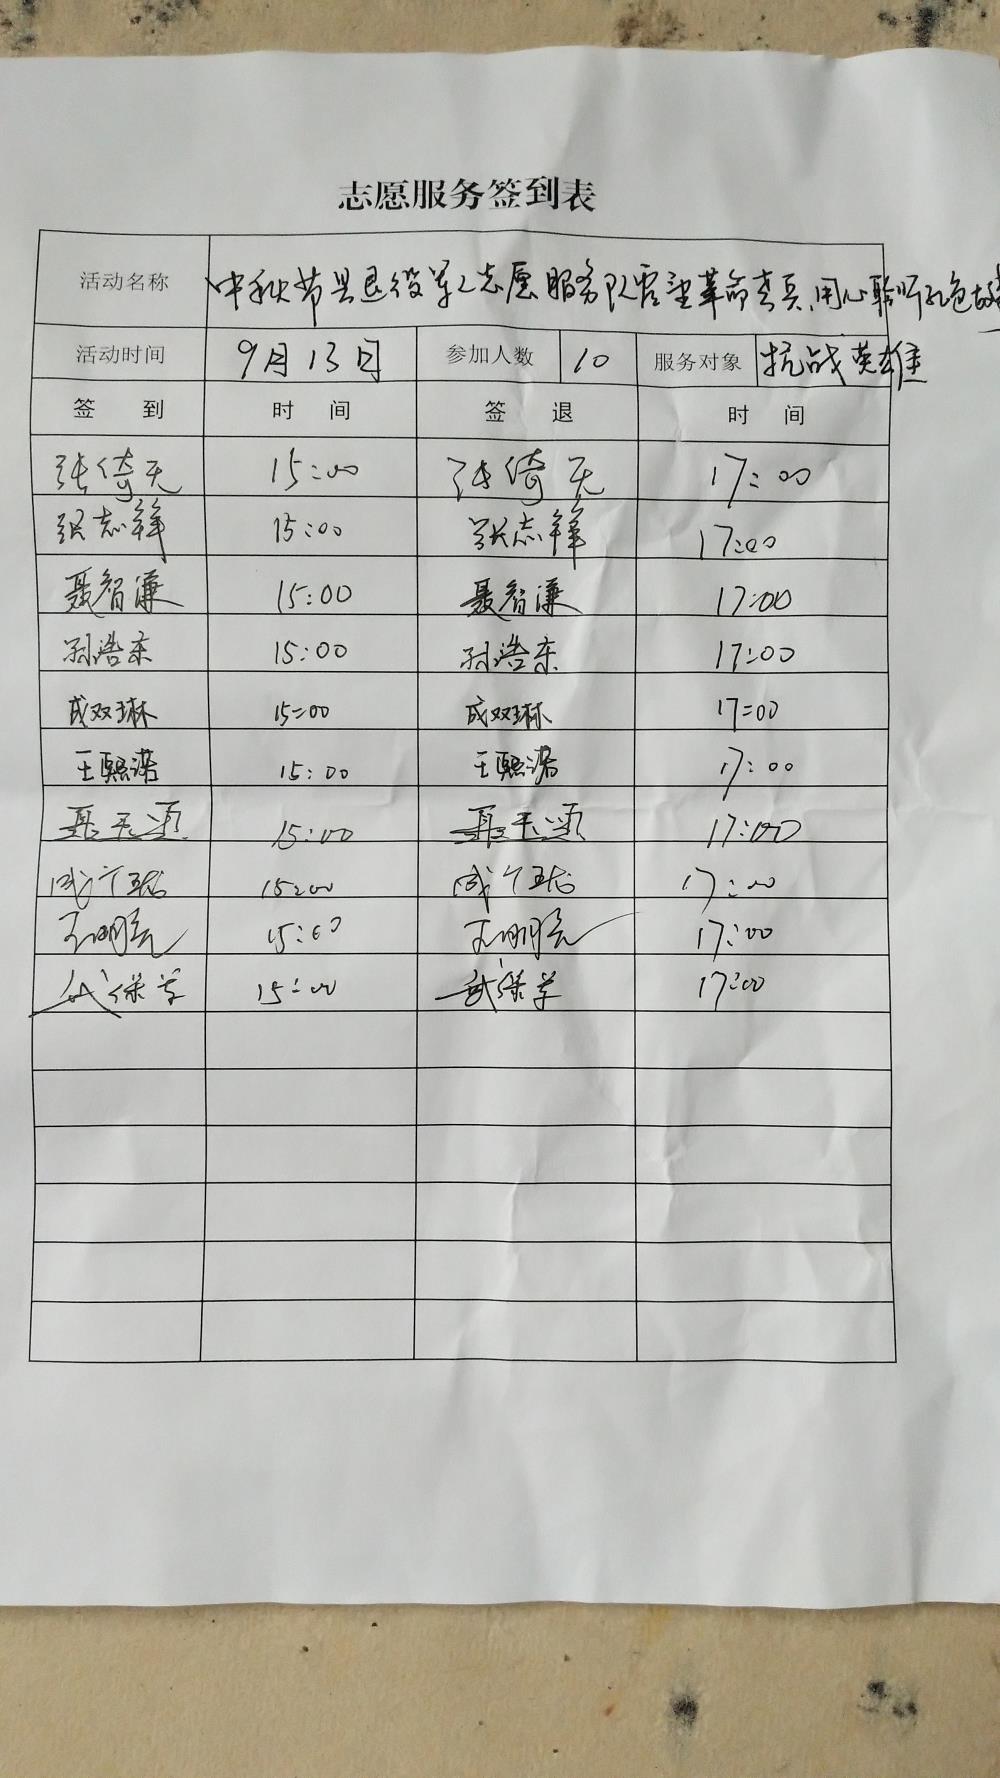 志愿服务签到表
活动名称 中秋节县退役军人志愿服务队看望革命老兵,用心聆听红色故事
活动时间 9月13日 参加人数 10 服务对象 抗战英雄
签 到 时 间 签 退 时 间
张倚天 15:00 张倚天 17:00
张志锋 15:00 张志锋 17:00
聂智濂 15:00 聂智濂 17:00
孙浩东 15:00 孙浩东 17:00
成双琳 15:00 成双琳 17:00
王熙诺 15:00 王熙诺 17:00
聂天颂 15:00 聂天颂 17:00
成 15:00 成 17:00
王明亮 15:00 王明亮 17:00
武保学 15:00 武保学 17:00